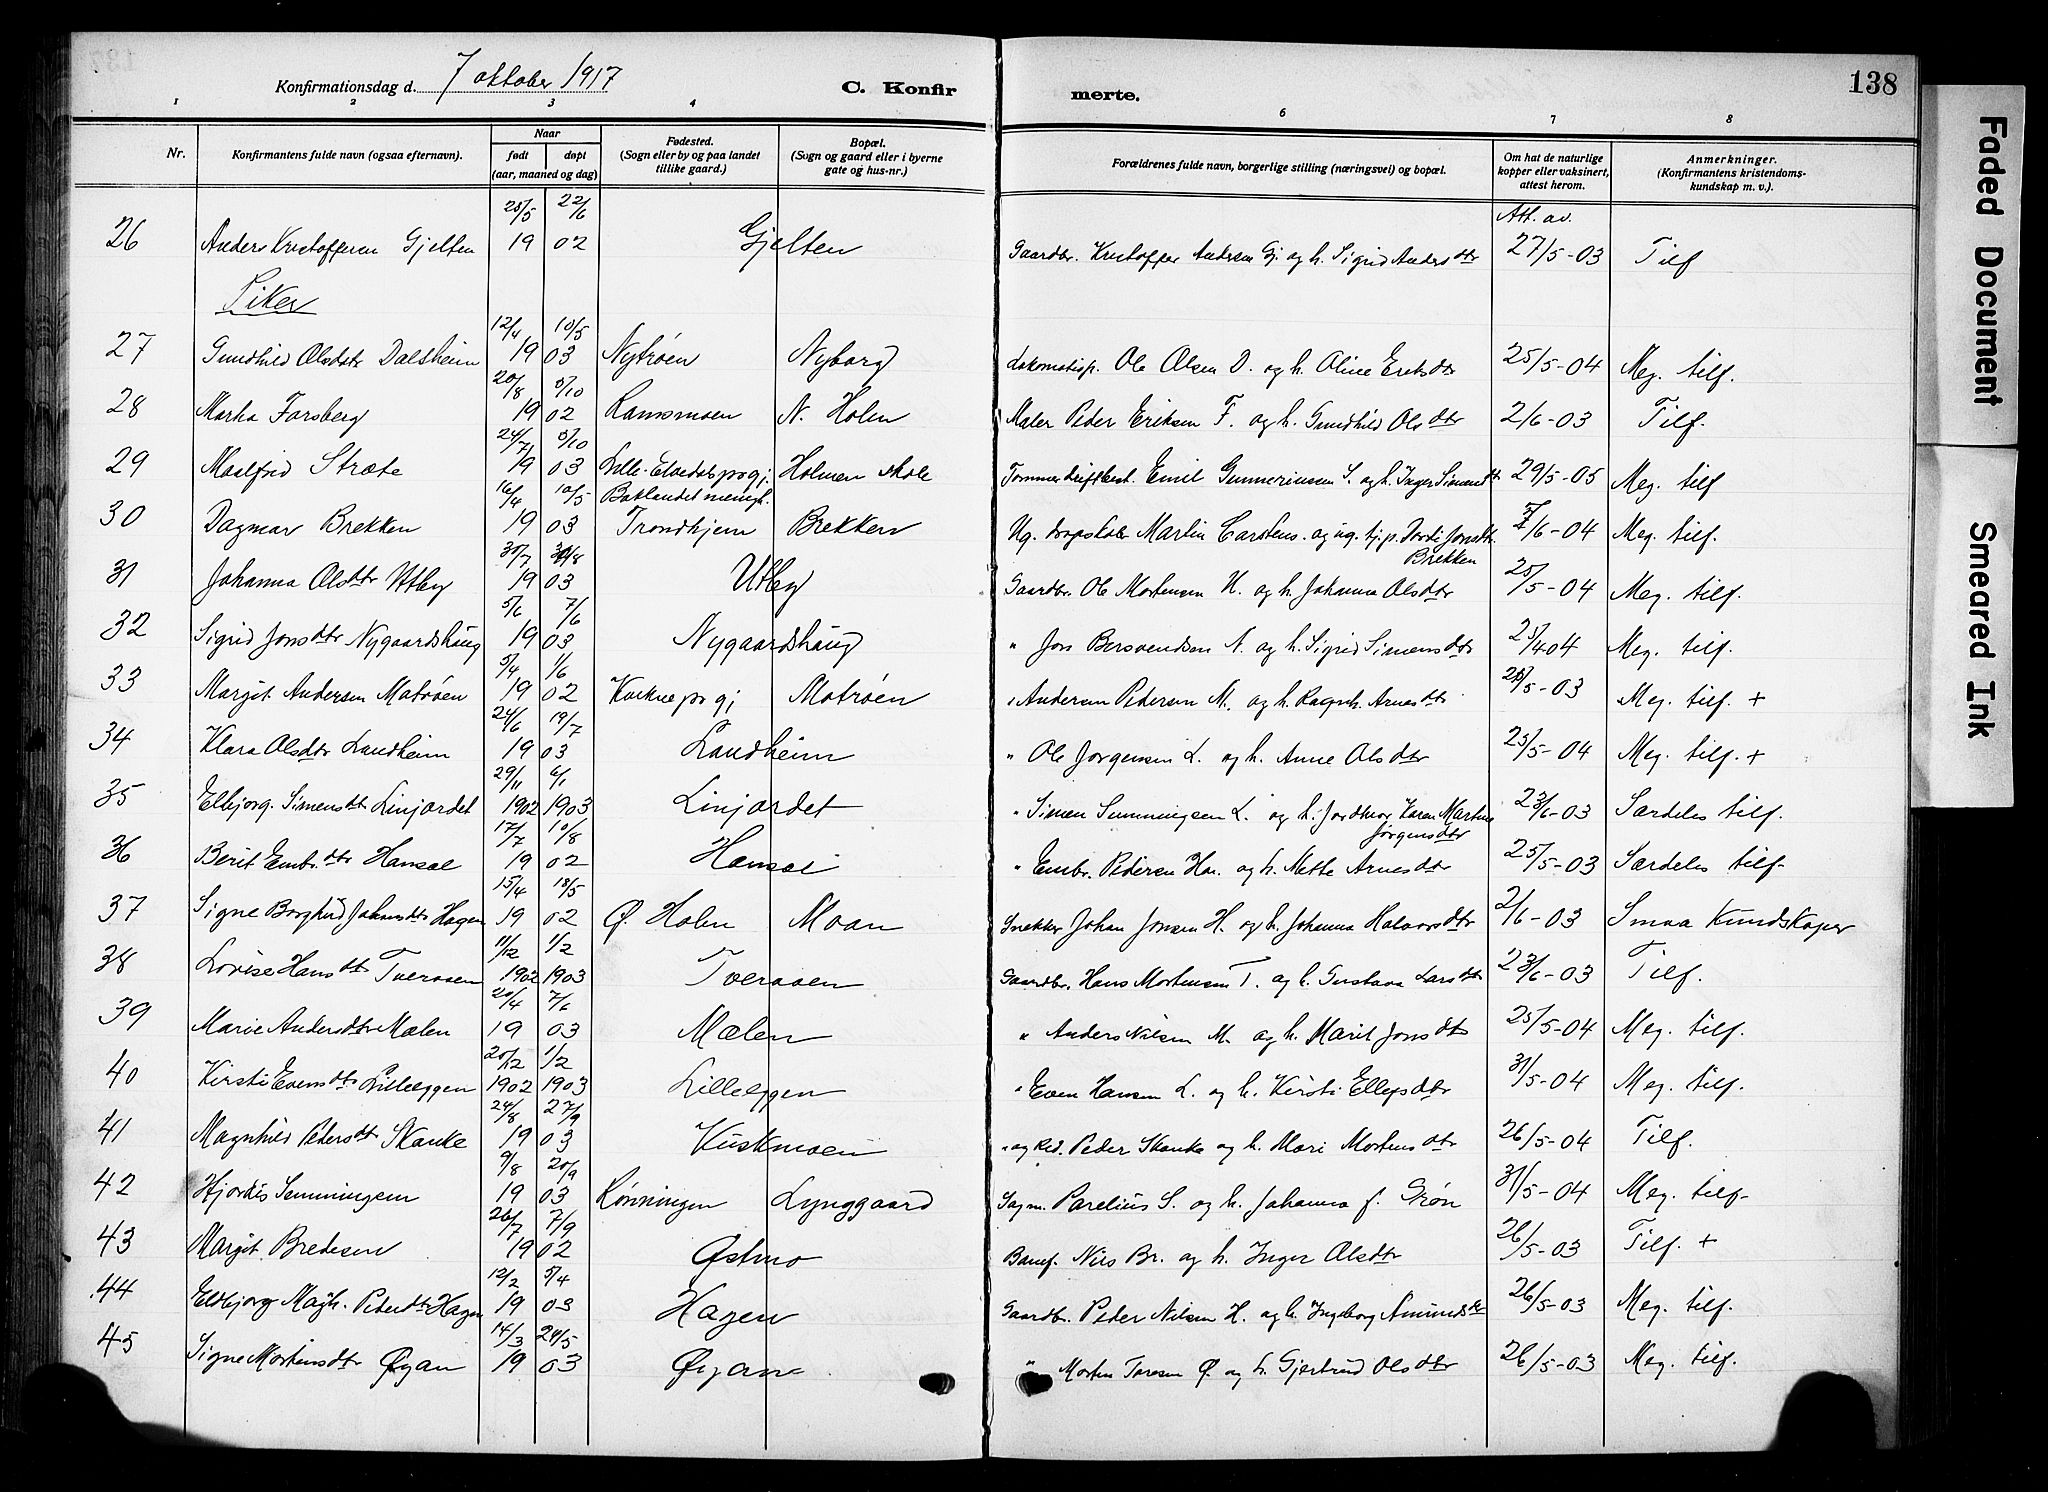 138
Konfirmationsdag d. 7 oktober 1917
C. Konfirmerte.
1 2 3 4 6 7 8
Nr. Konfirmantens fulde navn (ogsaa efternavn). Naar født døpt (aar, maaned og dag) Fødested. (Sogn eller by og paa landet tillike gaard.) Bopæl. (Sogn og gaard eller i byerne gate og hus-nr.) Forældrenes fulde navn, borgerlige stilling (næringsvei) og bopæl. Om hat de naturlige kopper eller vaksinert, attest herom. Anmerkninger. (Konfirmantens kristendomskundskap m. v.).
Att. av.
26 Anders Kristoffersen Gjelten 28/5 22/6 19 02 Gjelten Gaardbr. Kristoffer Andersen Gj. og h. Sigrid Andersdtr 27/5-03 Tilf
Piker
27 Gundhild Olsdatr Dalsheim 12/4 10/5 19 03 Nytrøen Nyborg Lokomotivp. Ole Olsen D. og h. Oline Eriksdtr 25/5-04 Meg. tilf.
28 Marha Forsberg 20/8 5/10 19 02 Ramsmoen N. Holen Maler Peder Eriksen F. og h. Gundhild Olsdtr 2/6-03 Tilf.
29 Maalfrid Stræte 24/7 5/10 19 03 Lille-Elvedals prgj. Holmen skole Tømmerdriftbest. Emil Gunneriusen S. og h. Inger Simensdtr 29/5-05 Meg. tilf
30 Dagmar Brekken 16/4 10/5 19 03 Baklandet menigh. Trondhjem Brekken Ug. Martin Carstens. og ug. tj.p. Dorti Jonsdtr. Brekken 7/6-04 Meg. tilf.
31 Johanna Olsdtr Utby 30/7 30/8 19 03 Utby Gaardbr. Ole Mortensen U. og h. Johanna Olsdtr 25/5-04 Meg. tilf.
32 Sigrid Jonsdtr Nygaardshaug 5/6 7/6 19 03 Nygaardshaug " Jon Bersvendsen N. og h. Sigrid Simensdtr 25/4 04 Meg. tilf.
33 Margit Andersen Motrøen 5/4 1/6 19 02 Kvikne prgj Motrøen " Andersen Pedersen M. og h. Ragnh. Arnesdtr /5-03 Meg. tilf. +
34 Klara Olsdtr Landheim 24/6 19/7 19 03 Landheim " Ole Jørgensen L. og h. Anne Olsdtr 25/5-04 Meg. tilf. +
35 Elbjørg Simensdtr Linjordet 29/11 6/1 1902 1903 Linjordet " Simen Semmingsen L. og h. Jordmor Karen Martine Jørgensdtr 23/6-03 Særdeles tilf.
36 Berit Embr.dtr Hansæl 17/7 10/8 19 02 Hansæl " Embr. Pedersen Han. og h. Mette Arnesdtr 25/5-03 Særdeles tilf.
37 Signe Borghild Johansdtr Hagen 15/4 18/5 19 02 Ø. Holen Moan Snekker Johan Jonsen H. og h. Johanna Halvorsdtr 2/6-03 Smaa Kundskaper
38 Lovise Hansdtr Tveraaen 11/12 1/2 1902 1903 Tveraaen Gaardbr. Hans Mortensen T. og h. Gustava Larsdtr 23/6-03 Tilf.
39 Marie Andersdtr Mælen 20/4 7/6 19 03 Mælen " Anders Nilsen M. og h. Marit Jonsdtr 25/5-04 Meg. tilf.
40 Kirsti Evensdtr Lilleeggen 20/12 1/2 1902 1903 Lilleeggen " Even Hansen L. og h. Kirsti Ellefsdtr 31/5-04 Meg. tilf.
41 Magnhild Pedersdtr Skanke 24/8 27/9 19 03 Kuskmoen " og Red. Peder Skanke og h. Mari Mortensdtr 26/5-04 Tilf.
42 Hjørdis Semmingsen 9/8 20/9 19 03 Rønningen Lynggaard Sagm. Parelius S. og h. Johanna f. Grøn 31/5-04 Meg. tilf-
43 Margit Bredesen 26/7 7/9 19 02 Østmo Banef. Nils Br. og h. Inger Olsdtr 26/5-03 Tilf. +
44 Eldbjørg Magh. Pedersdtr Hagen 12/2 5/4 19 03 Hagen Gaardbr. Peder Nilsen H. og h. Ingeborg Amundsdtr 26/5-03 Meg. tilf.
45 Signe Mortensdtr Øyan 14/3 24/5 19 03 Øyan " Morten Toresen Ø og h. Gjertrud Olsdtr 26/5-03 Meg. tilf.
Faded Document
Smeared Ink